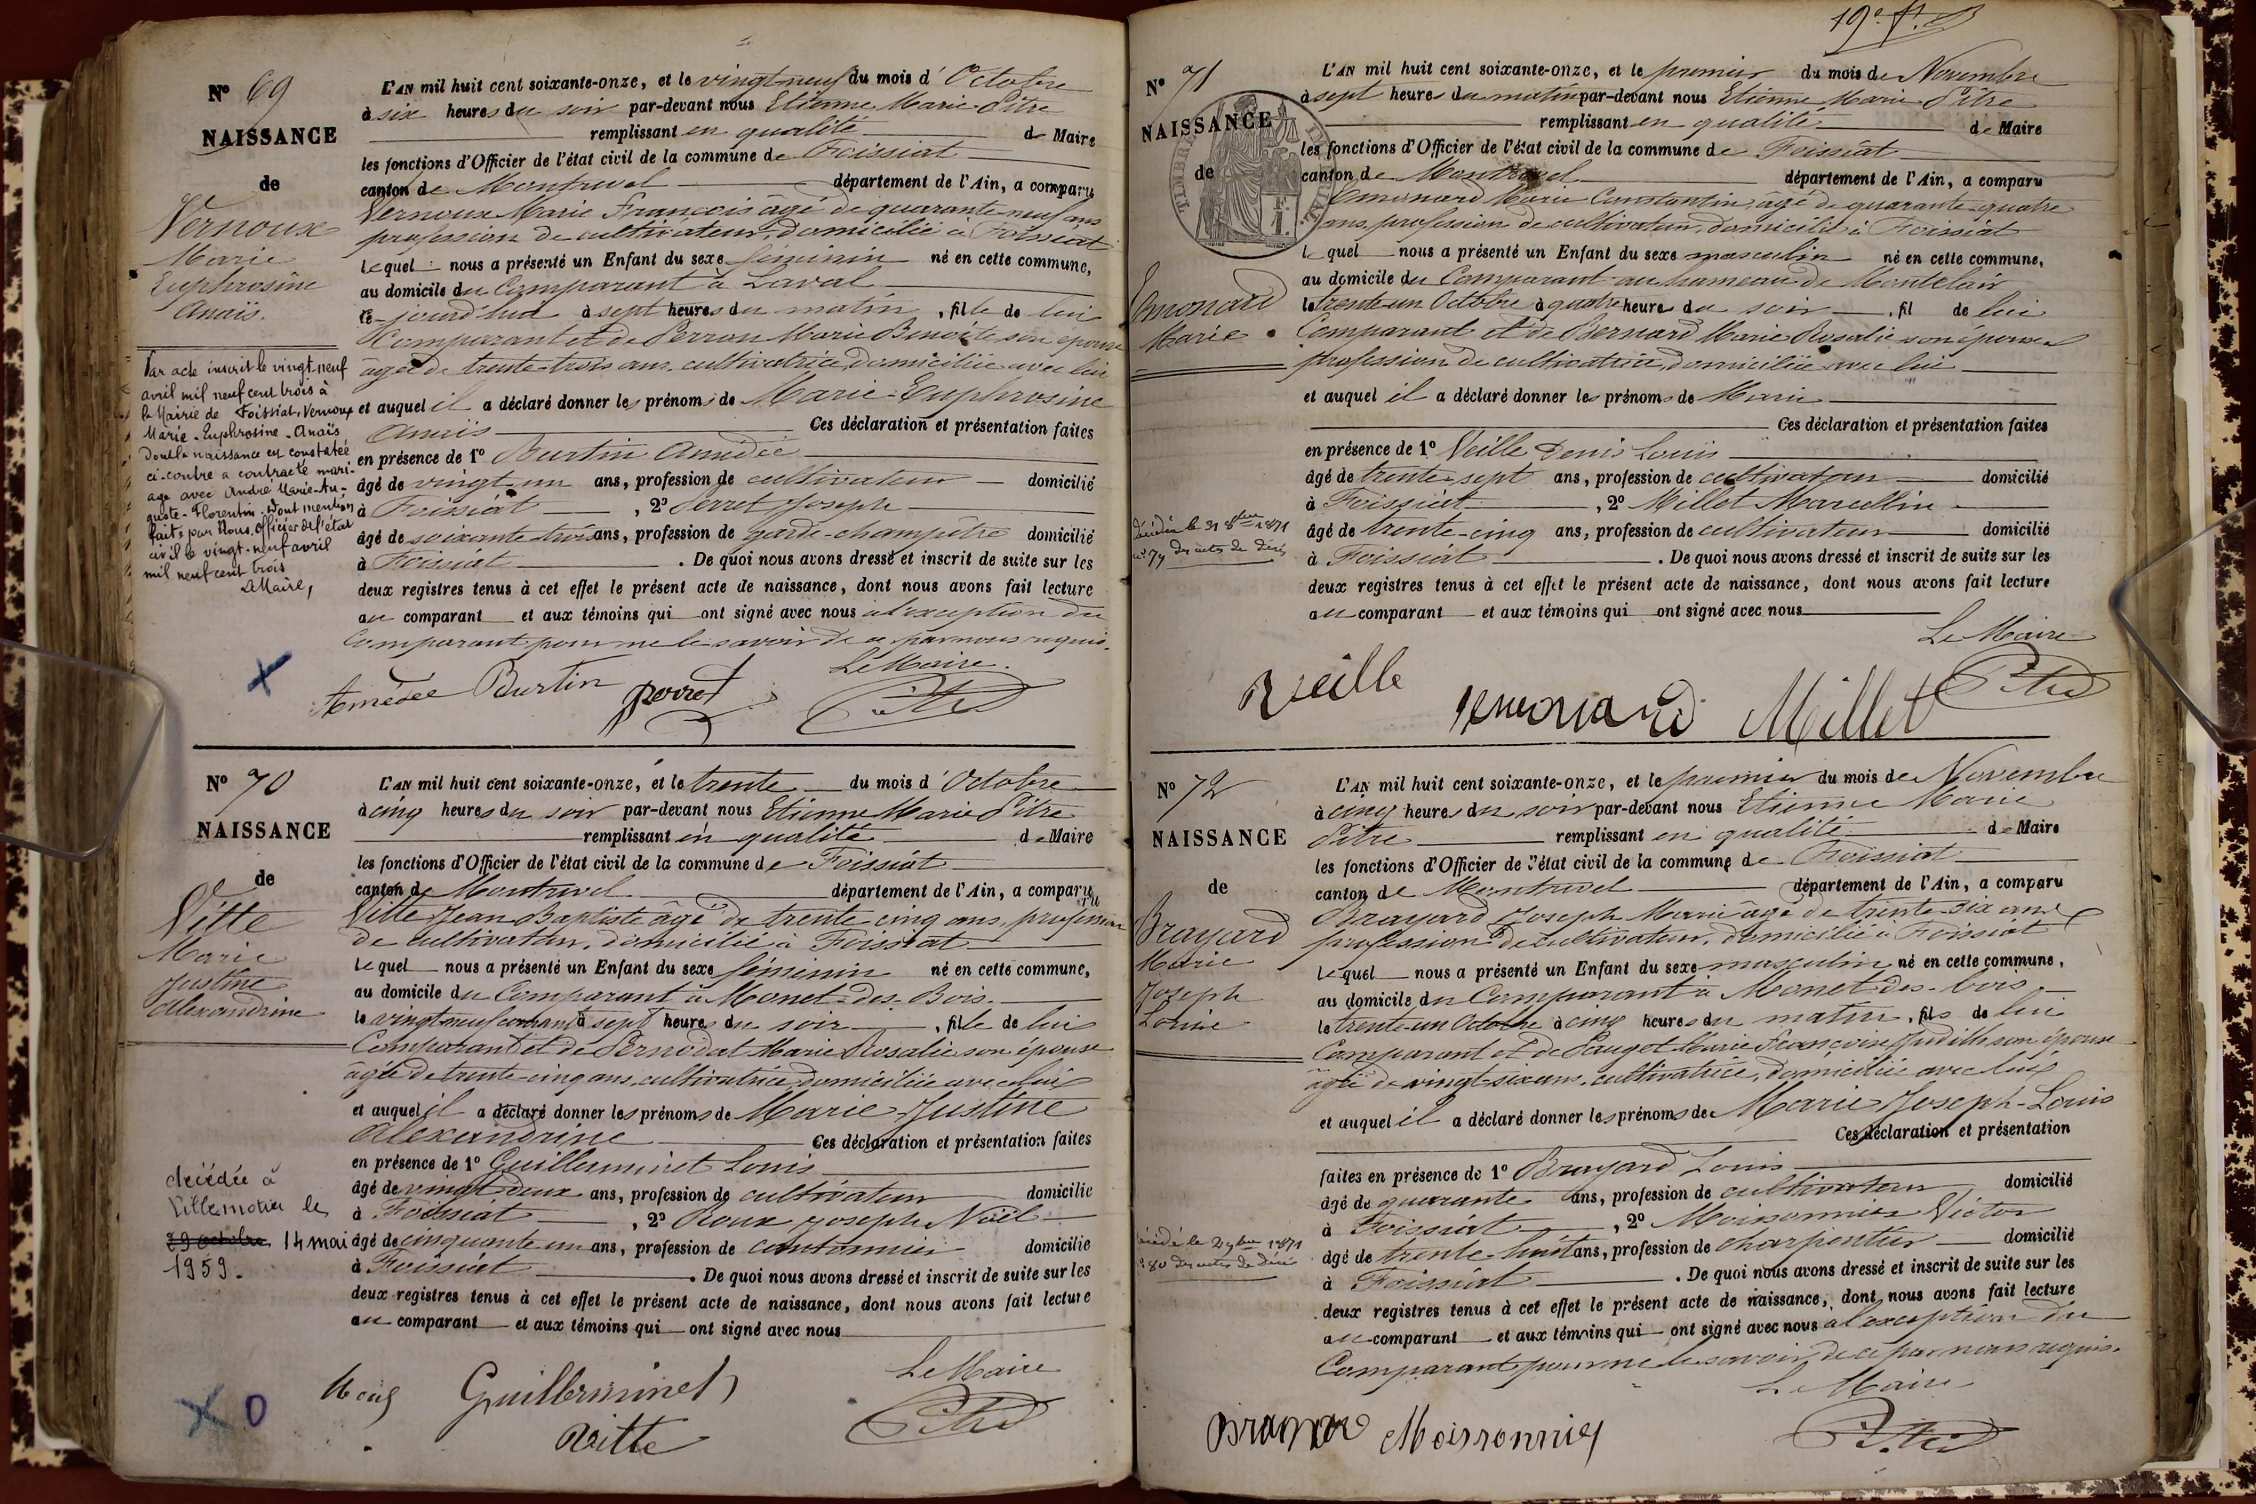 Nº 69
NAISSANCE
de
Vernoux
Marie
Euphrosine
Anaïs.
Par acte inscrit le vingt-neuf
avril mil neuf cent trois à
la Mairie de Foissiat, Vernoux
Marie-Euphrosine-Anaïs
dont la naissance est constatée
ci-contre a contracté mari-
age avec André Marie-Au-
guste-Florentin. Dont mention
faite par Nous, Officier de l'état
civil le vingt-neuf avril
mil neuf cent trois
Le Maire,
L'AN mil huit cent soixante-onze, et le vingt-neuf du mois d'Octobre
à six heures du soir par-devant nous Etienne Marie Pitre
remplissant en qualité de Maire
les fonctions d'Officier de l'état civil de la commune de Foissiat
canton de Montrevel département de l'Ain, a comparu
Vernoux Marie François âgé de quarante-neuf ans
profession de cultivateur, domicilié à Foissiat
lequel nous a présenté un Enfant du sexe féminin né en cette commune,
au domicile du Comparant à Laval
ce-jourd'hui à sept heures du matin, fille de lui
Comparant et de Perron Marie Benoite son épouse
âgée de trente-trois ans, cultivatrice, domiciliée avec lui
et auquel il a déclaré donner les prénoms de Marie-Euphrosine
Anaïs Ces déclaration et présentation faites
en présence de 1º Burtin Amédée
âgé de vingt-un ans, profession de cultivateur domicilié
à Foissiat, 2º Perret Joseph
âgé de soixante-trois ans, profession de garde-champêtre domicilié
à Foissiat. De quoi nous avons dressé et inscrit de suite sur les
deux registres tenus à cet effet le présent acte de naissance, dont nous avons fait lecture
au comparant et aux témoins qui ont signé avec nous à l'exception du
Comparant pour ne le savoir de ce par nous requis.
Le Maire.
Amédée Burtin Perret Pitre
Nº 70
NAISSANCE
de
Vitte
Marie
Justine
Alexandrine
décédée à
Villemotier le
29 octobre 14 mai
1959.
L'AN mil huit cent soixante-onze, et le trente du mois d'Octobre
à cinq heures du soir par-devant nous Etienne Marie Pitre
remplissant en qualité de Maire
les fonctions d'Officier de l'état civil de la commune de Foissiat
canton de Montrevel département de l'Ain, a comparu
Vitte Jean Baptiste âgé de trente-cinq ans, profession
de cultivateur, domicilié à Foissiat
lequel nous a présenté un Enfant du sexe féminin né en cette commune,
au domicile du Comparant à Monet-des-Bois.
le vingt-neuf courant à sept heures du soir, fille de lui
Comparant et de Pernodat Marie Rosalie son épouse
âgée de trente-cinq ans, cultivatrice, domiciliée avec lui
et auquel il a déclaré donner les prénoms de Marie Justine
Alexandrine Ces déclaration et présentation faites
en présence de 1º Guillerminet Louis
âgé de vingt-deux ans, profession de cultivateur domicilié
à Foissiat, 2º Roux Joseph Noël
âgé de cinquante-un ans, profession de cantonnier domicilié
à Foissiat. De quoi nous avons dressé et inscrit de suite sur les
deux registres tenus à cet effet le présent acte de naissance, dont nous avons fait lecture
au comparant et aux témoins qui ont signé avec nous
Le Maire
Guillerminet Pitre
Vitte
Nº 71
NAISSANCE
de
Emonard
Marie
Décédé le 31 8bre 1871
nº 79 des actes de décès
L'AN mil huit cent soixante-onze, et le premier du mois de Novembre
à sept heures du matin par-devant nous Etienne Marie Pitre
remplissant en qualité de Maire
les fonctions d'Officier de l'état civil de la commune de Foissiat
canton de Montrevel département de l'Ain, a comparu
Emonard Marie Constantin, âgé de quarante-quatre
ans, profession de cultivateur, domicilié à Foissiat
lequel nous a présenté un Enfant du sexe masculin né en cette commune,
au domicile du Comparant au hameau de Montclair
le trente-un Octobre à quatre heures du soir, fil de lui
Comparant et de Bernard Marie Rosalie son épouse
profession de cultivatrice, domiciliée avec lui
et auquel il a déclaré donner les prénoms de Marie
Ces déclaration et présentation faites
en présence de 1º Veille Denis Louis
âgé de trente-sept ans, profession de cultivateur domicilié
à Foissiat, 2º Millet Marcellin
âgé de trente-cinq ans, profession de cultivateur domicilié
à Foissiat. De quoi nous avons dressé et inscrit de suite sur les
deux registres tenus à cet effet le présent acte de naissance, dont nous avons fait lecture
au comparant et aux témoins qui ont signé avec nous
Le Maire
Veille Emonard Millet Pitre
Nº 72
NAISSANCE
de
Brayard
Marie
Joseph
Louis
décédé le 2 9bre 1871
nº 80 des actes de décès
L'AN mil huit cent soixante-onze, et le premier du mois de Novembre
à cinq heures du soir par-devant nous Etienne Marie
Pitre remplissant en qualité de Maire
les fonctions d'Officier de l'état civil de la commune de Foissiat
canton de Montrevel département de l'Ain, a comparu
Brayard Joseph Marie âgé de trente-six ans
profession de cultivateur, domicilié à Foissiat
lequel nous a présenté un Enfant du sexe masculin né en cette commune,
au domicile du Comparant à Monet-des-bois,
le trente-un Octobre à cinq heures du matin, fils de lui
Comparant et de Pauget Marie Françoise Judith son épouse
âgée de vingt-six ans, cultivatrice, domiciliée avec lui
et auquel il a déclaré donner les prénoms de Marie Joseph-Louis
Ces déclaration et présentation
faites en présence de 1º Brayard Louis
âgé de quarante ans, profession de cultivateur domicilié
à Foissiat, 2º Moissonnier Victor
âgé de trente-huit ans, profession de charpentier domicilié
à Foissiat. De quoi nous avons dressé et inscrit de suite sur les
deux registres tenus à cet effet le présent acte de naissance, dont nous avons fait lecture
au comparant et aux témoins qui ont signé avec nous à l'exception du
Comparant pour ne le savoir, de ce par nous requis.
Le Maire
Brayard Moissonnier Pitre